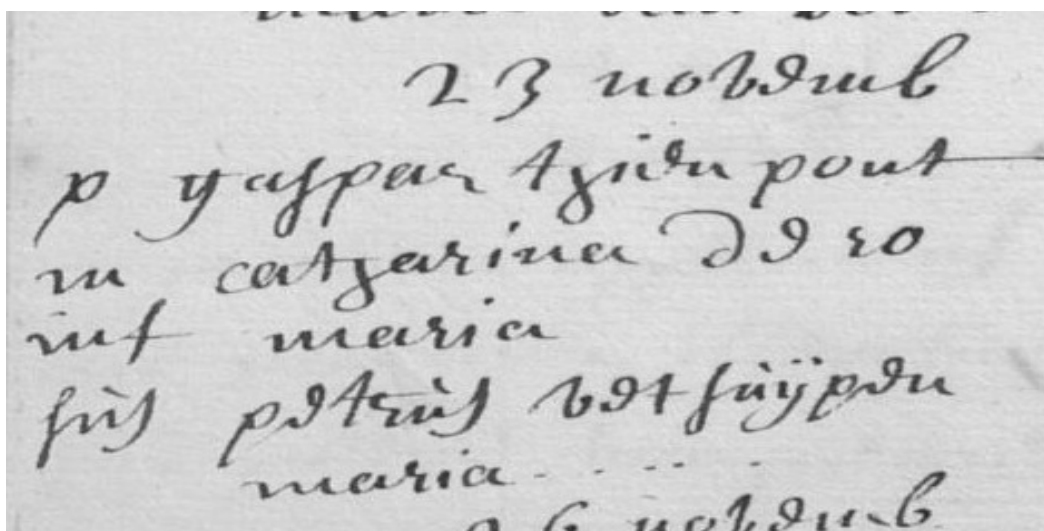 23 novemb
p gaspar tzien pont
m catharina de ro
inf maria
sus petrus vethuÿpen
maria . . . . .
26 novemb